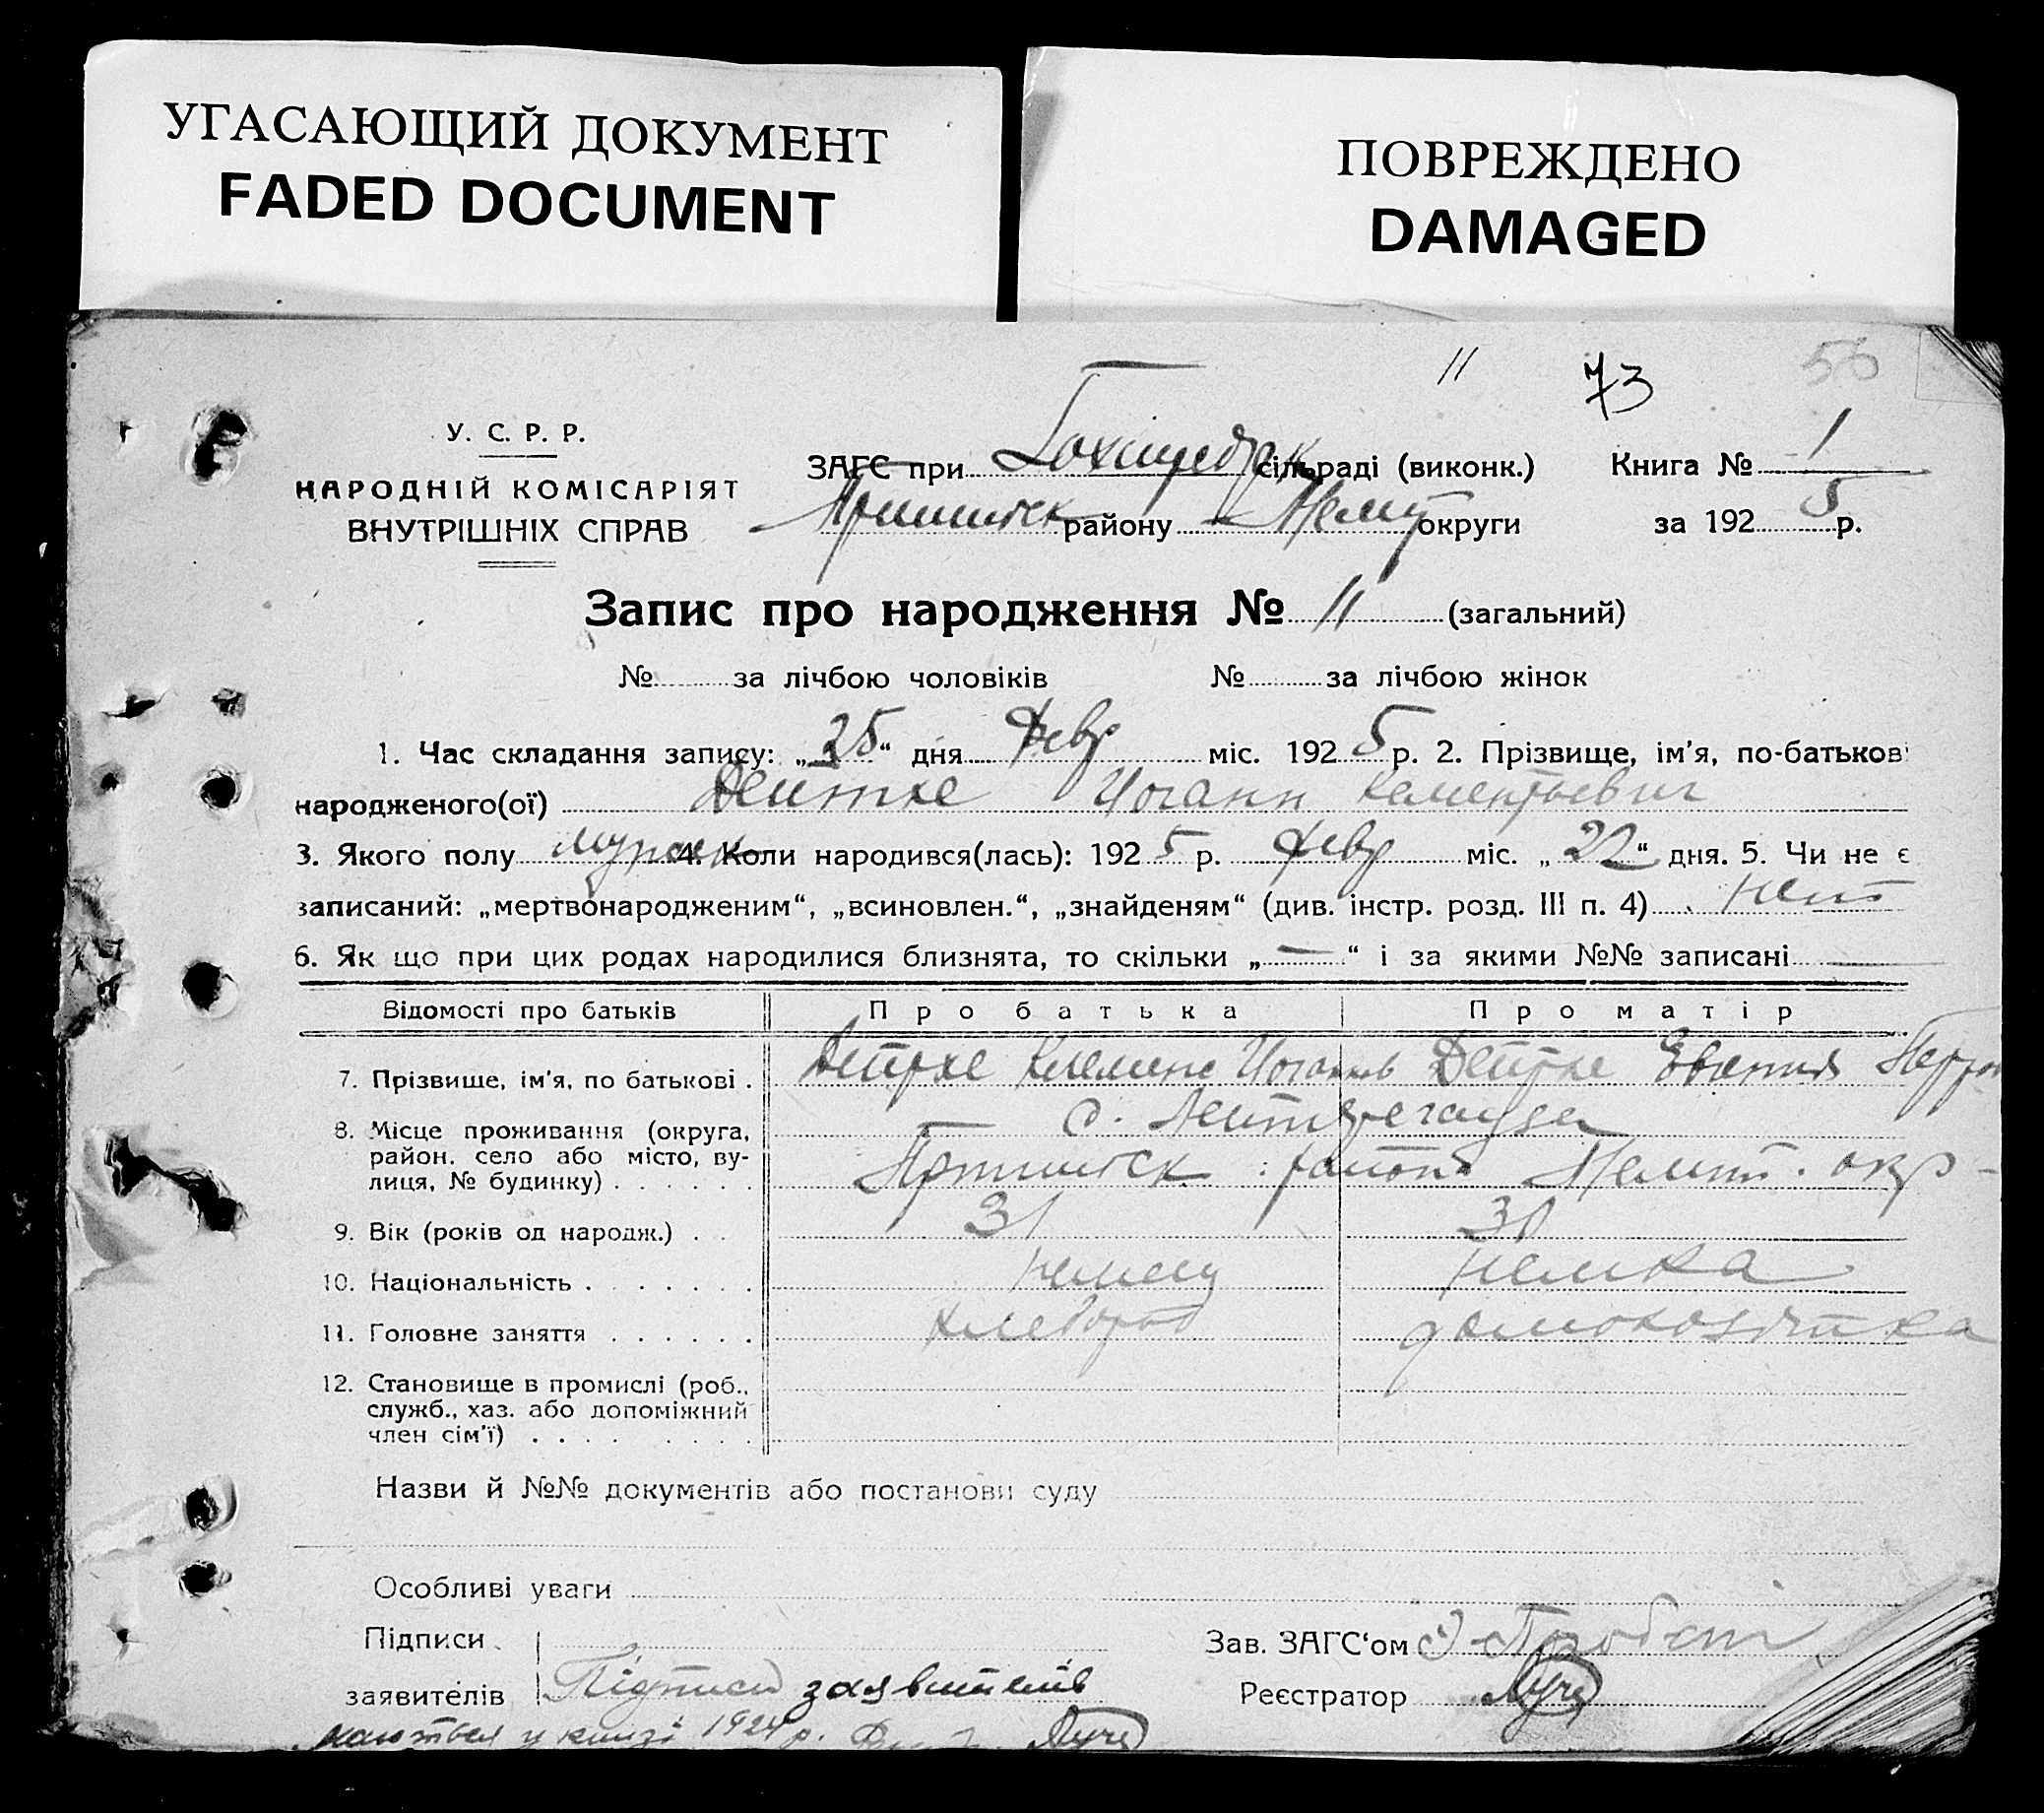 УГАСАЮЩИЙ ДОКУМЕНТ
FADED DOCUMENT
ПОВРЕЖДЕНО
DAMAGED
11 73 56
У. С. Р. Р.
НАРОДНІЙ КОМІСАРІЯТ
ВНУТРІШНІХ СПРАВ
ЗАГС при сільраді (виконк.) Книга № 1
району округи за 1925 р.
Запис про народження № 11 (загальний)
№ за лічбою чоловіків № за лічбою жінок
1. Час складання запису: „25“ дня февр міс. 1925 р. 2. Прізвище, ім'я, по-батькові
народженого(ої) Иоганн Клементьевич
3. Якого полу мужск 4. Коли народився(лась): 1925 р. февр міс. „22“ дня. 5. Чи не є
записаний: „мертвонародженим“, „всиновлен.“, „знайденям“ (див. інстр. розд. III п. 4) нет
6. Як що при цих родах народилися близнята, то скільки „—“ і за якими №№ записані —
Відомості про батьків Про батька Про матір
7. Прізвище, ім'я, по батькові . Клеменс Евгения
8. Місце проживання (округа, с.
район, село або місто, ву-
лиця, № будинку) . . . . . . район окр
9. Вік (років од народж.) . . 31
10. Національність . . . . . . . немец немка
11. Головне заняття . . . . . . хлебороб домохозяйка
12. Становище в промислі (роб.,
служб., хаз. або допоміжний
член сім'ї) . . . . . . . .
Назви й №№ документів або постанови суду
Особливі уваги
Підписи Зав. ЗАГС'ом
заявителів Підписи заявителів Реєстратор
маються у книзі 1924 р.